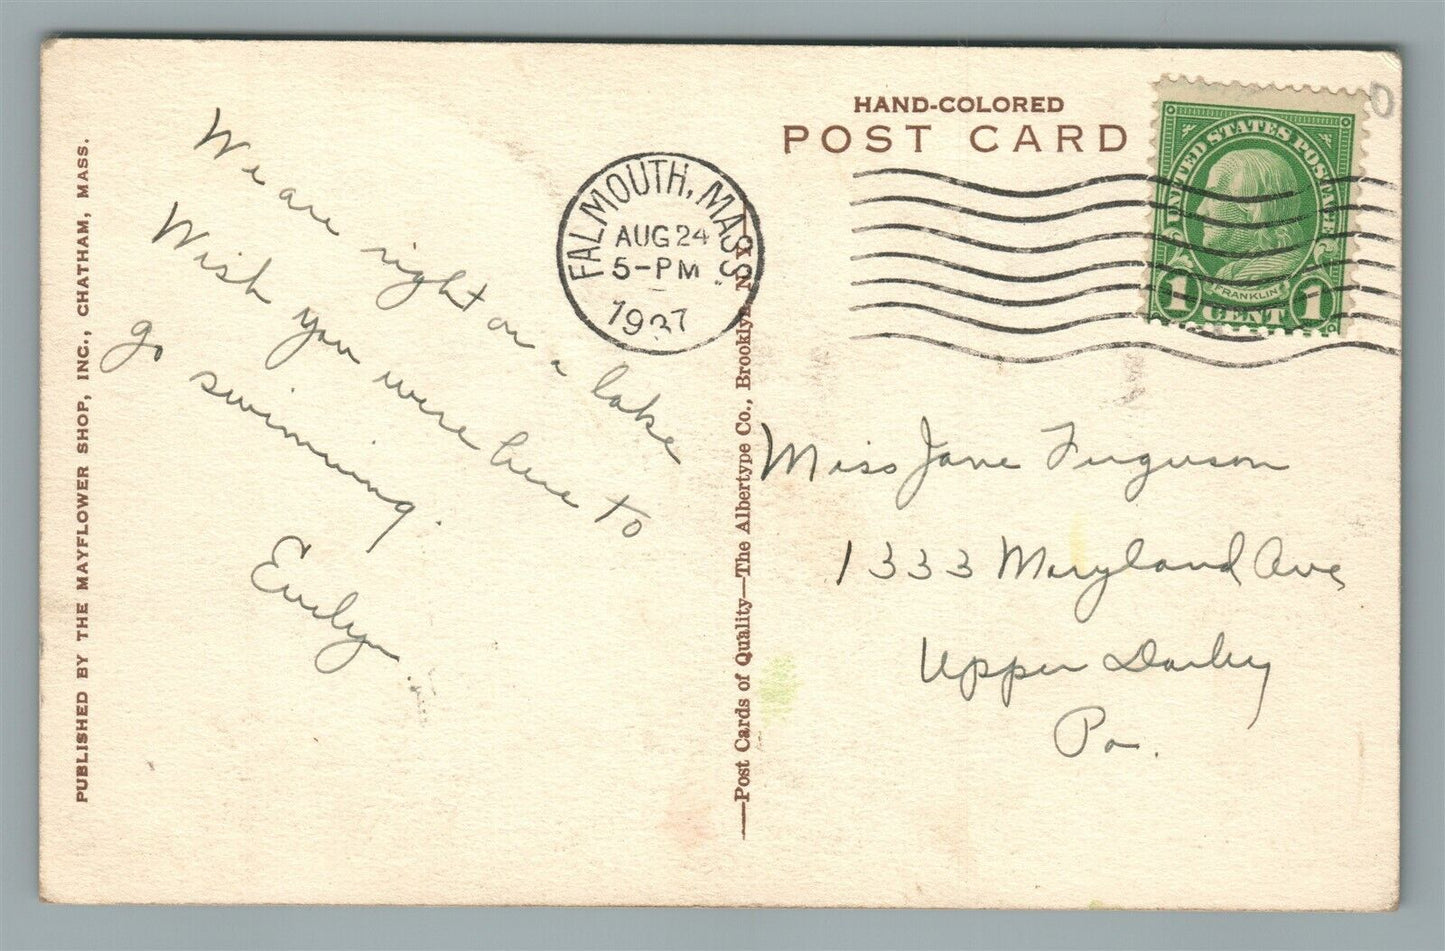 HAND-COLORED
POST CARD
UNITED STATES POSTAGE
FRANKLIN
1 CENT 1
FALMOUTH, MASS.
AUG 24
5-PM
1937
We are right on a lake
Wish you were here to
go swimming.
Evelyn
Miss Jane Ferguson
1333 Maryland Ave
Upper Darby
Pa.
PUBLISHED BY THE MAYFLOWER SHOP, INC., CHATHAM, MASS.
—Post Cards of Quality—The Albertype Co., Brooklyn, N. Y.—
0